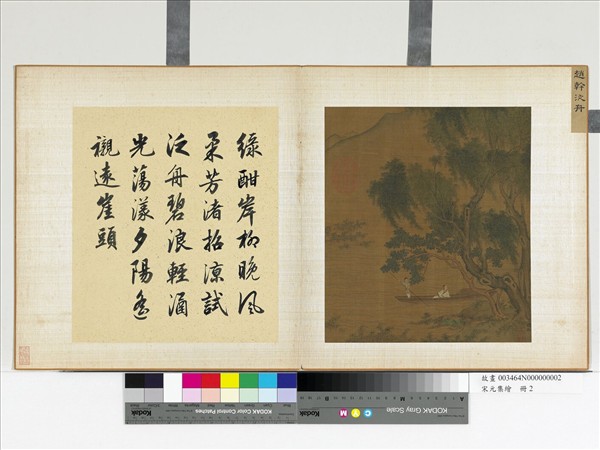 趙幹泛舟
綠酣岸柳晚風
柔芳渚招涼試
泛舟碧浪輕涵
光蕩漾夕陽遙
襯遠崖頭
故畫 003464N000000002
宋元集繪 冊 2
KODAK Color Control Patches
KODAK Gray Scale
Kodak
C Y M